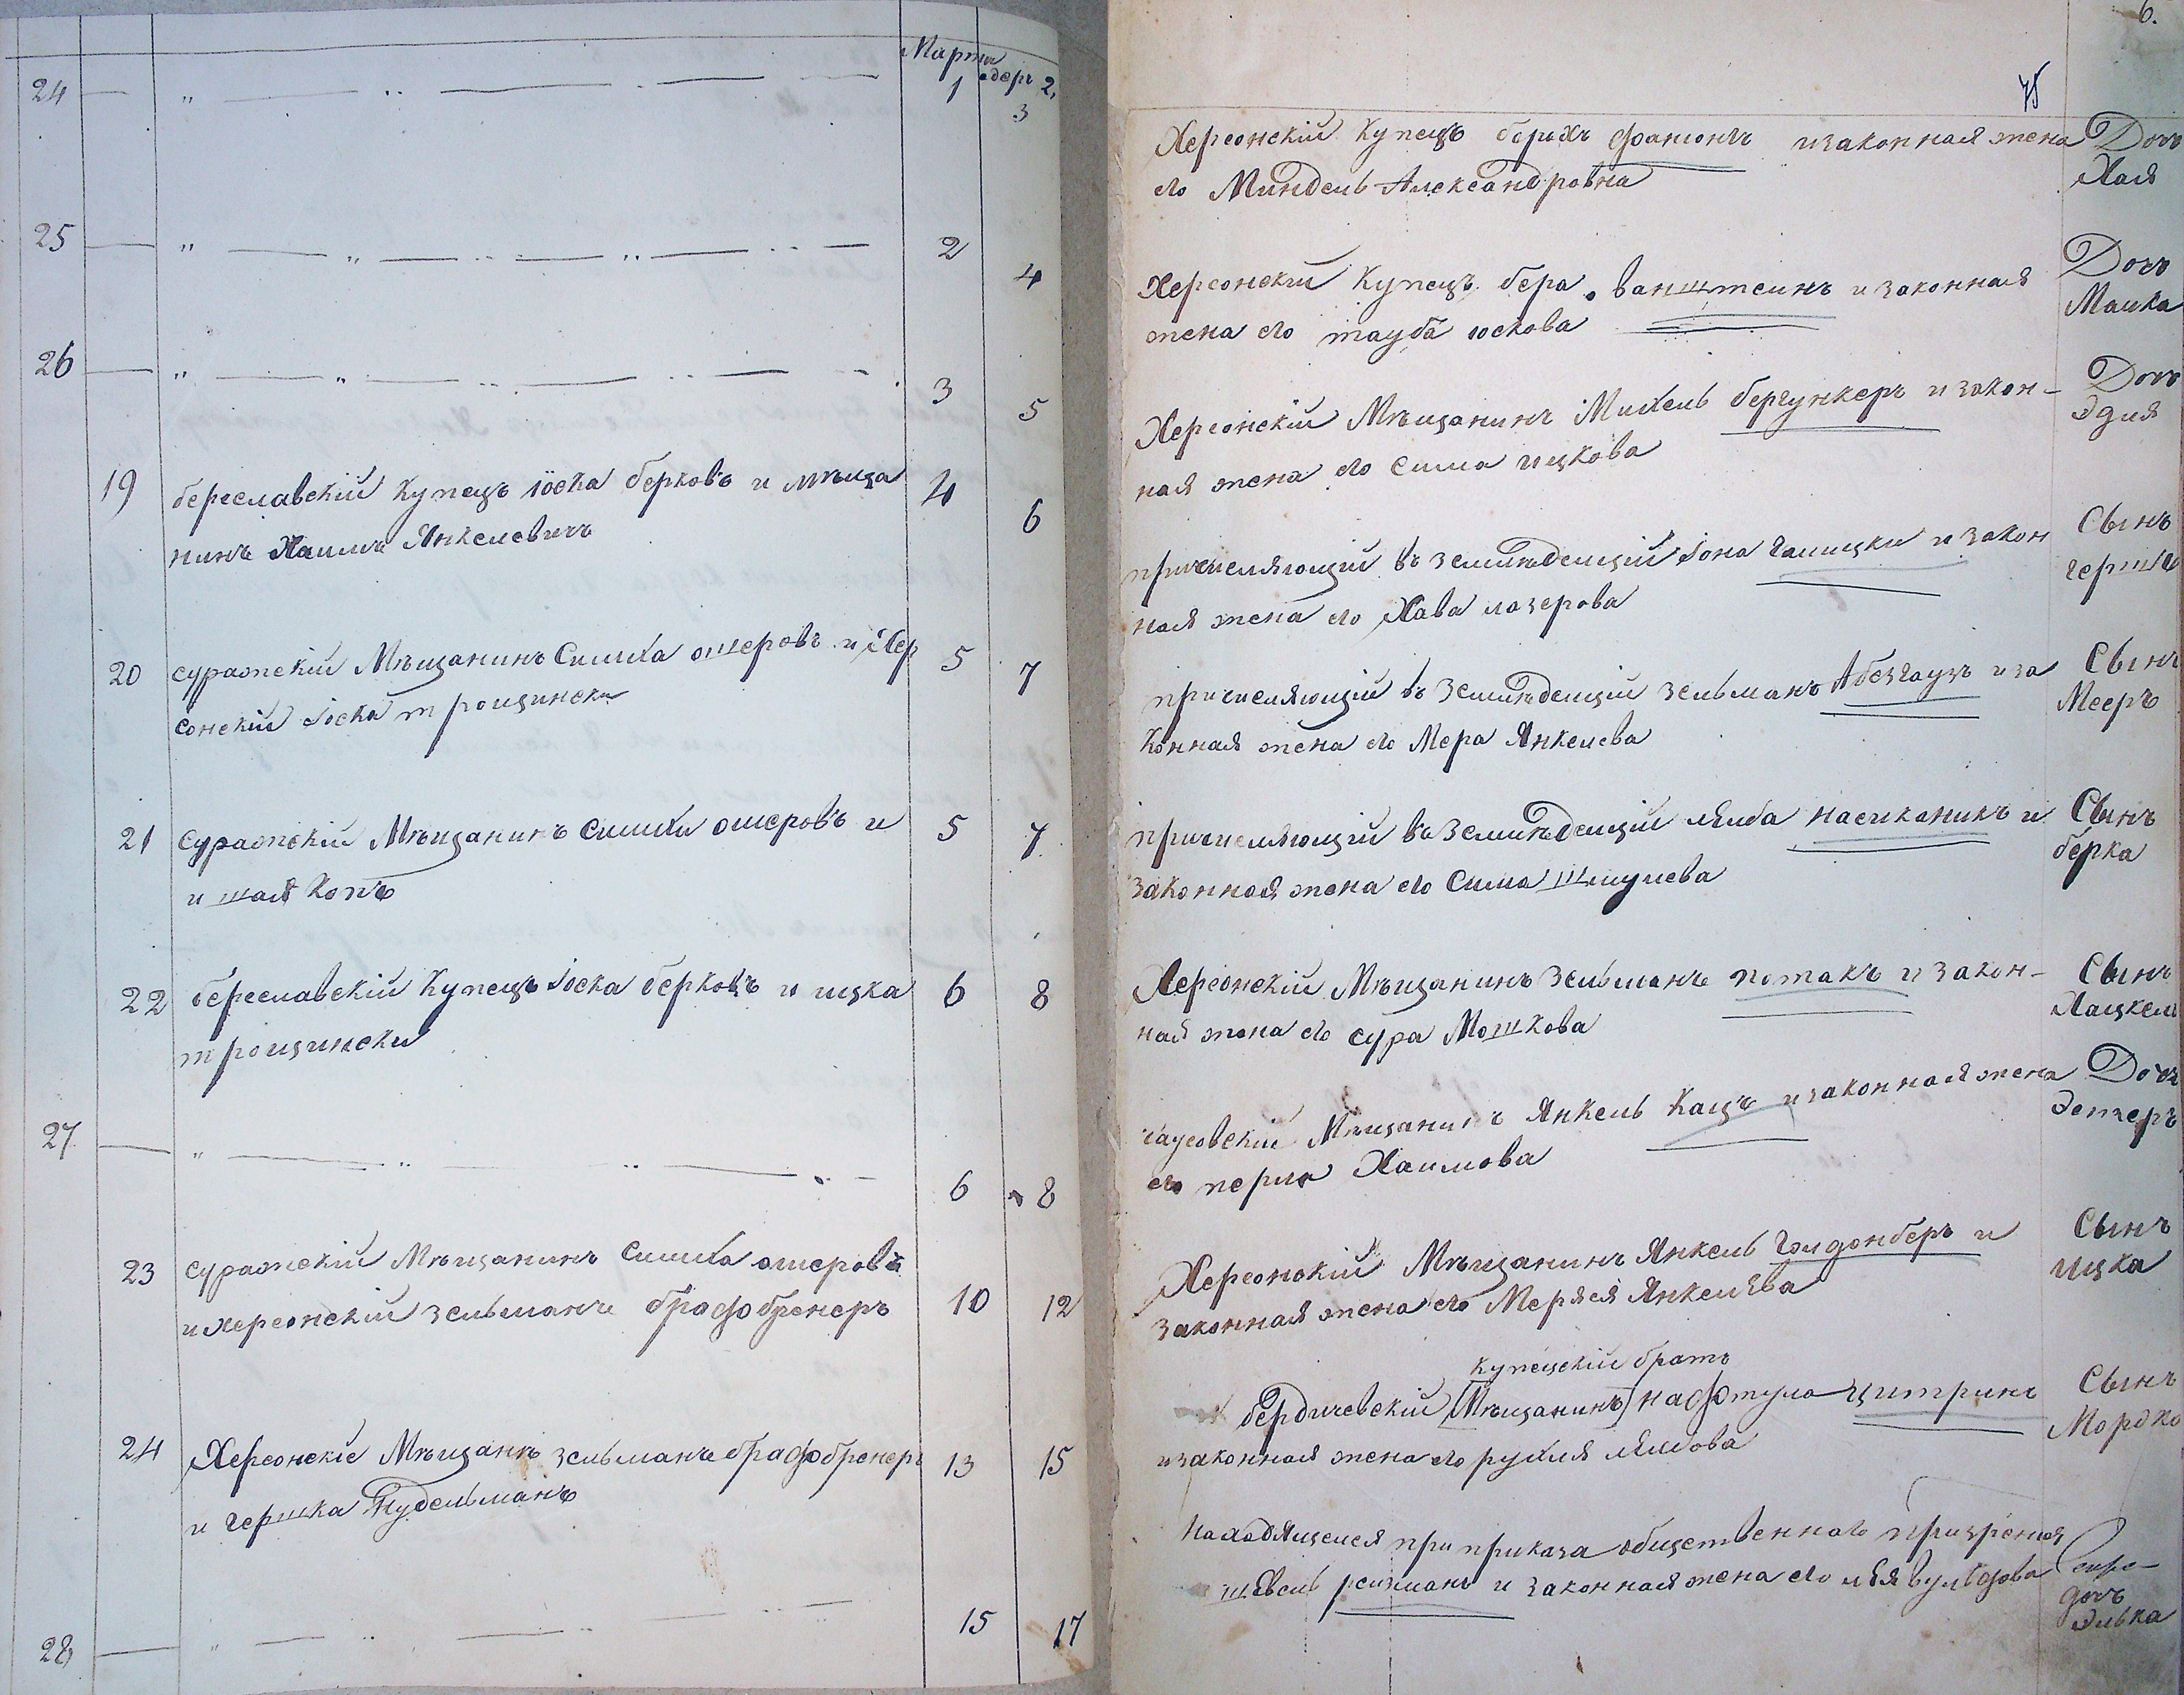 Марта
адеръ 2,
24 1 3
25 2 4
26 3 5
19 береславскій Купецъ іоска берковъ и мѣща 4 6
нинъ Хаимъ Янкелевичъ
20 суражскій Мѣщанинъ Симха ошеровъ и Хер 5 7
сонскій іоска трощински
21 суражскій Мѣщанинъ Симха ошеровъ и 5 7
и шая Копъ
22 береславскій Купецъ іоска берковъ и ицка 6 8
трощински
27 6 8
23 суражскій Мѣщанинъ Симха ошеровъ
и херсонскій зельманъ брафобренеръ 10 12
24 Херсонскіе Мѣщане зельманъ брафобренеръ 13 15
и гершка Нудельманъ
28 15 17
6.
75
Херсонскій Купецъ берохъ фаионъ и законная жена Дочь
его Миндель Александровна Хая
Херсонскій Купецъ бера ванштеинъ и законная Дочь
жена его тауба юскова Малка
Херсонскій Мѣщанинъ Михель бергункеръ и закон- Дочь
ная жена его Сима ицкова Эдия
причисляющій въ Землѣдельцій іона галицки и закон Сынъ
ная жена его Хава лазерова гершъ
причисляющій въ Землѣдельцій зельманъ Абезгаузъ и за Сынъ
конная жена его Мера Янкелева Мееръ
причисляющій въ Землѣдельцій лейба насиканикъ и Сынъ
законная жена его Сима Шмулева берка
Херсонскій Мѣщанинъ Зельманъ потакъ и закон- Сынъ
ная жена его сура Мошкова Хацкель
чаусовскій Мѣщанинъ Янкель Кацъ и законная жена Дочь
его перла Хаимова Эстеръ
Херсонскій Мѣщанинъ Янкель Голдонберъ и Сынъ
законная жена его Меряся Янкелева ицка
купецкій братъ
бердичевскій [Мѣщанинъ] нафтула цитринъ Сынъ
и законная жена его рухля лейбова Мордко
Находящемся при приказа общественнаго призренія
шевель рейзманъ и законная жена его лея вульфова
дочь
Элька